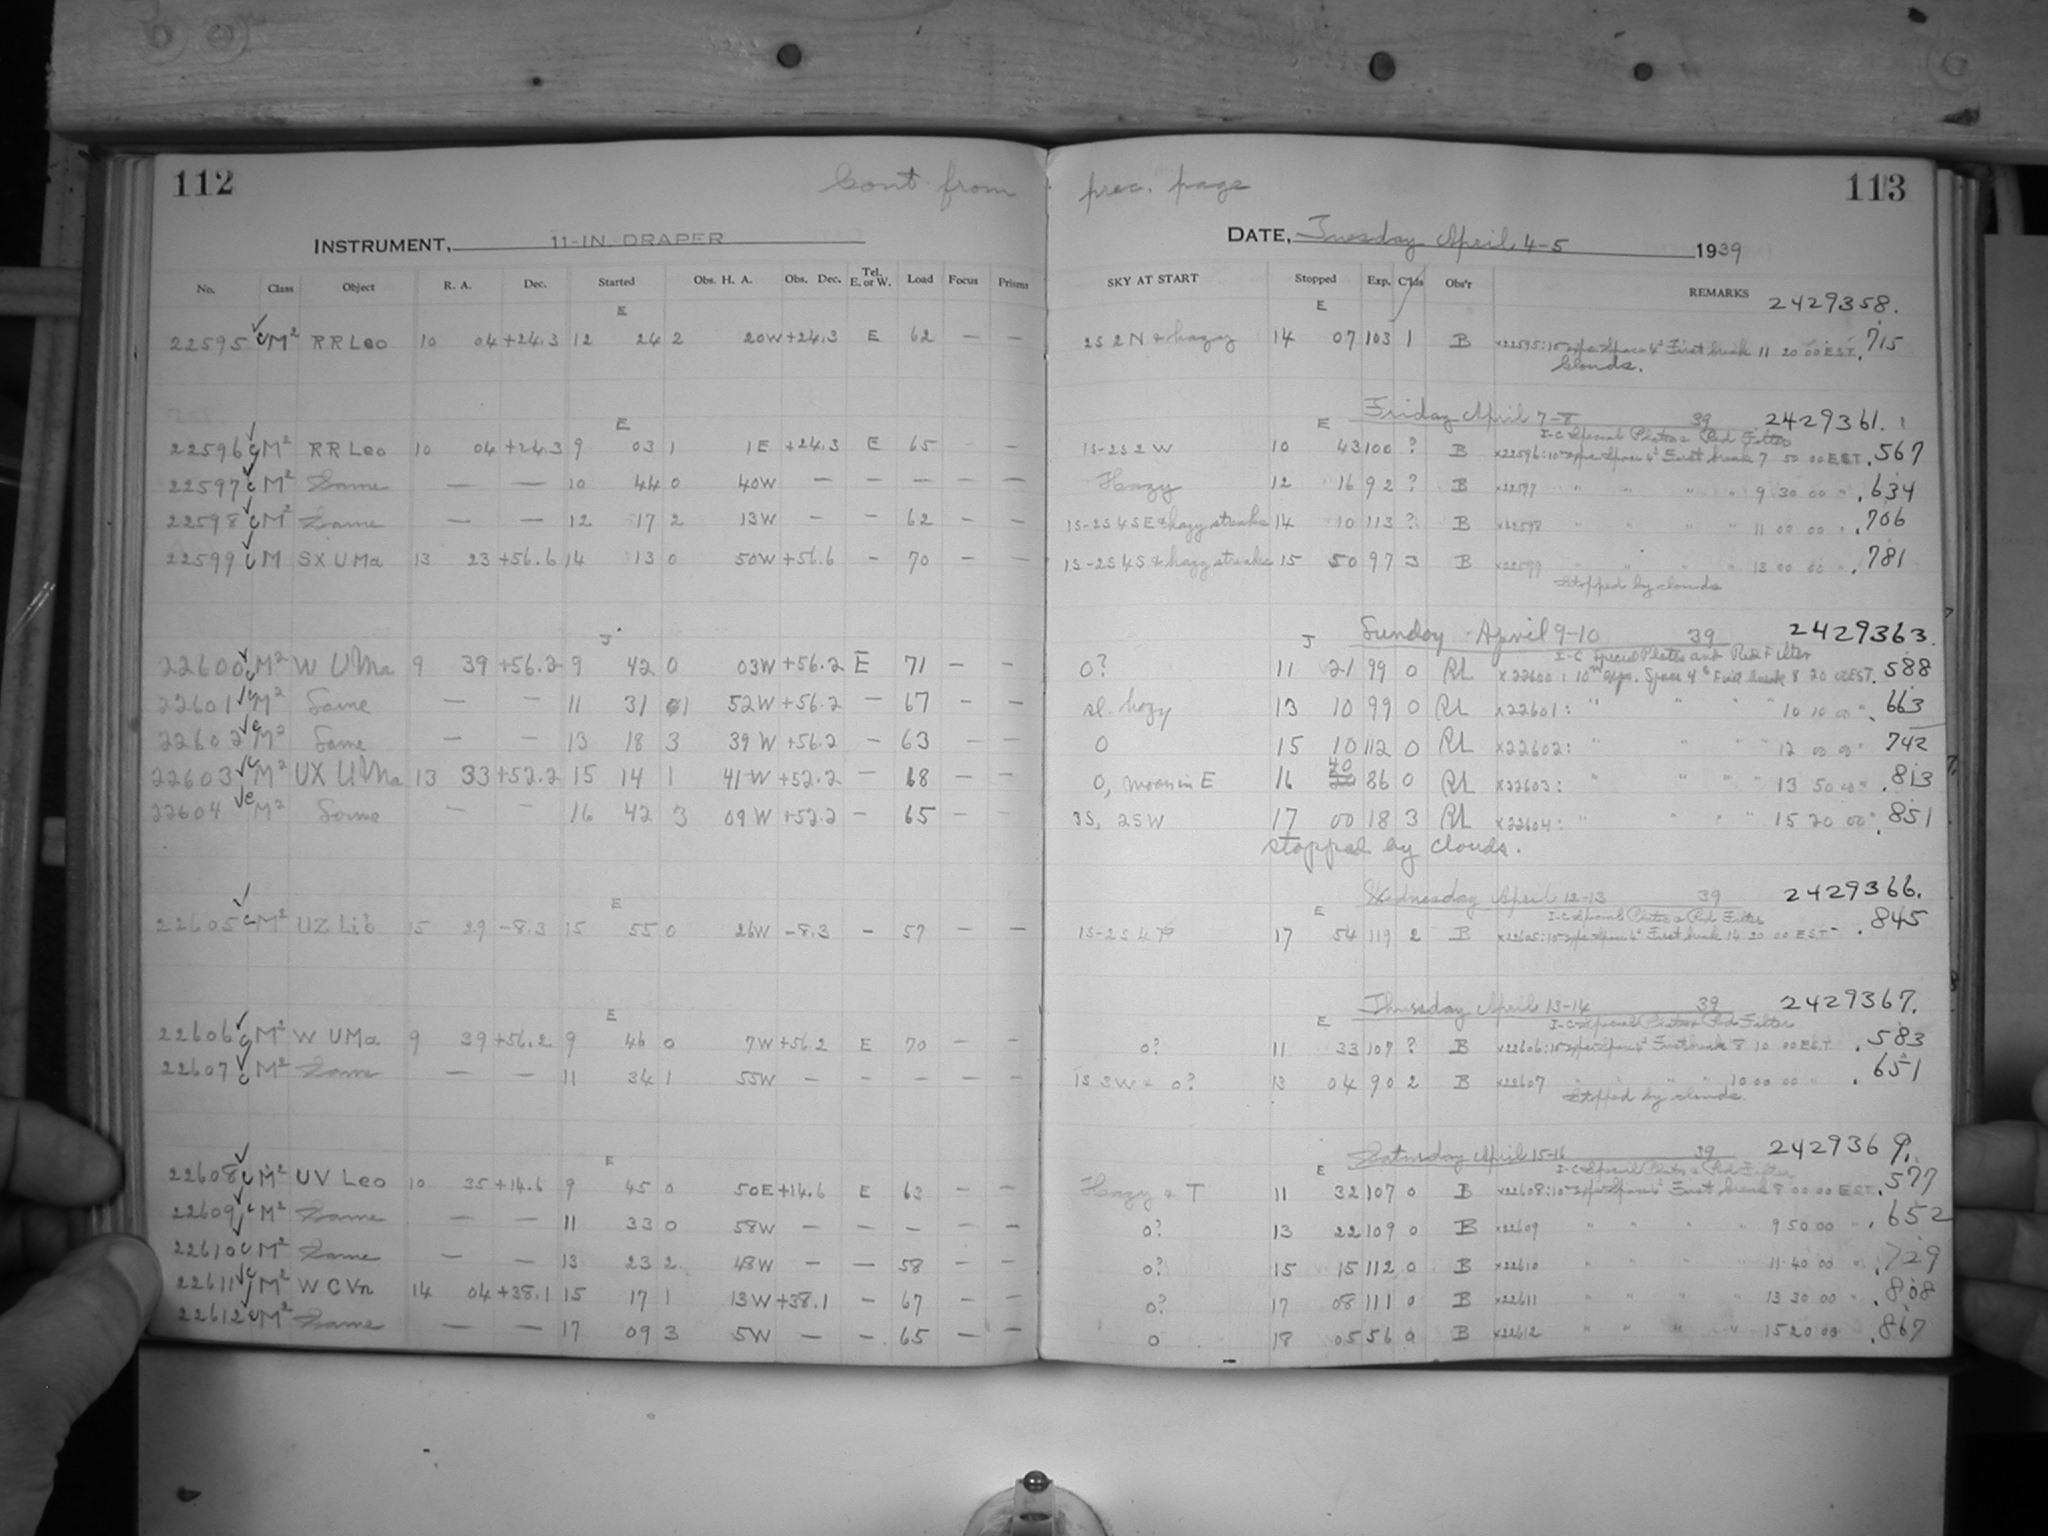 112 Cont from prec. page 113
INSTRUMENT, 11-IN. DRAPER DATE, Tuesday April 4-5 1939
No. Class Object R. A. Dec. Started Obs. H. A. Obs. Dec. Tel. E. or W. Load Focus Prisms SKY AT START Stopped Exp. C'lds Obs'r REMARKS 2429358.
E E
22595 c M² RR Leo 10 04 +24.3 12 24 2 20W +24.3 E 62 — — 2S 2N & hazy 14 07 103 1 B x22595: 10ᵐ exps. Space 4ˢ First break 11 20 00 EST. .715
Clouds.
E E Friday April 7-8 39 2429361.
I-C Special Plates & Red Filter
22596 c M² RR Leo 10 04 +24.3 9 03 1 1E +24.3 E 65 - - 1S-2S 2W 10 43 100 ? B x22596: 10ᵐ exps. Space 4ˢ First break 7 50 00 EST. .567
22597 c M² Same — — 10 44 0 40W — — — — — Hazy 12 16 92 ? B x22597 " " " " 9 30 00 " .634
22598 c M² Same — — 12 17 2 13W — — 62 — — 1S-2S 4SE & hazy streaks 14 10 113 ? B x22598 " " " " 11 00 00 " .706
22599 c M SX UMa 13 23 +56.6 14 13 0 50W +56.6 - 70 — — 1S-2S 4S & hazy streaks 15 50 97 3 B x22599 " " " " 13 00 00 " .781
Stopped by clouds
J J Sunday April 9-10 39 2429363.
I-C Special Plates and Red Filter
22600 c M² W UMa 9 39 +56.2 9 42 0 03W +56.2 E 71 — — 0? 11 21 99 0 RL x22600: 10ᵐ exps. Space 4ˢ First break 8 20 00 EST. .588
22601 c M² Same — — 11 31 1 52W +56.2 — 67 — — sl. hazy 13 10 99 0 RL x22601: " " " " 10 10 00 " .663
22602 c M² Same — — 13 18 3 39W +56.2 — 63 — — 0 15 10 112 0 RL x22602: " " " 12 00 00 " 742
22603 c M² UX UMa 13 33 +52.2 15 14 1 41W +52.2 — 68 — — 0, moon in E 16 40 86 0 RL x22603: " " " " 13 50 00 " .813
22604 c M² Same — — 16 42 3 09W +52.2 — 65 — — 3S, 2SW 17 00 18 3 RL x22604: " " " " 15 20 00 " .851
stopped by clouds.
E E Wednesday April 12-13 39 2429366.
I-C Special Plates & Red Filter
22605 c M² UZ Lib 15 29 -8.3 15 55 0 26W -8.3 — 57 — — 1S-2S 4 17 54 119 2 B x22605: 10ᵐ exps. Space 4ˢ First break 14 20 00 EST .845
E E Thursday April 13-14 39 2429367.
I-C Special Plates & Red Filter
22606 c M² W UMa 9 39 +56.2 9 46 0 7W +56.2 E 70 — — 0? 11 33 107 ? B x22606: 10ᵐ exps. Space 4ˢ First break 8 10 00 EST. .583
22607 c M² Same — — 11 34 1 55W — — — — — 1S 3W & 0? 13 04 90 2 B x22607 " " " " 10 00 00 " .651
Stopped by clouds.
E E Saturday April 15-16 39 2429369.
I-C Special Plates & Red Filter
22608 c M² UV Leo 10 35 +14.6 9 45 0 50E +14.6 E 63 — — Hazy & T 11 32 107 0 B x22608: 10ᵐ exps. Space 4ˢ First break 8 00 00 EST. .577
22609 c M² Same — — 11 33 0 58W — — — — — 0? 13 22 109 0 B x22609 " " " " 9 50 00 " .652
22610 c M² Same — — 13 23 2 48W — — 58 — — 0? 15 15 112 0 B x22610 " " " " 11 40 00 " .729
22611 c M² W CVn 14 04 +38.1 15 17 1 13W +38.1 — 67 — — 0? 17 08 111 0 B x22611 " " " " 13 30 00 " .808
22612 c M² Same — — 17 09 3 5W — — 65 — — 0 18 05 56 0 B x22612 " " " " 15 20 00 .867